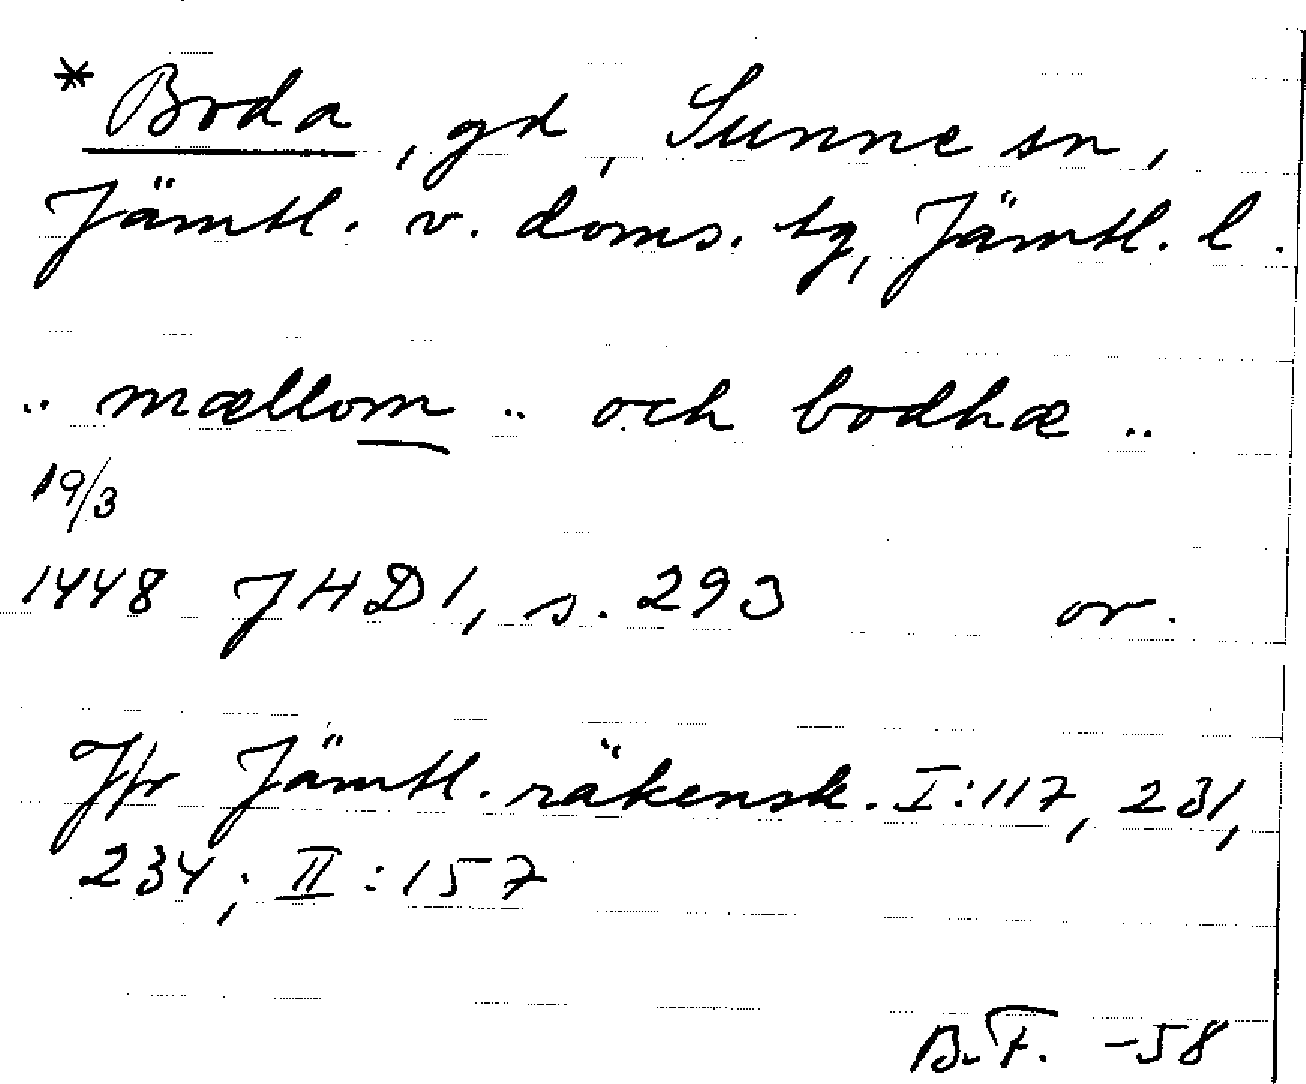 * Boda, gd, Sunne sn,
Jämtl. v. doms. tg, Jämtl. l.
.. mællom .. och bodhæ ..
19/3
1448 JHD 1, s. 293 or.
Jfr Jämtl. räkensk. I:117, 231,
234; II:157
B.F. -58